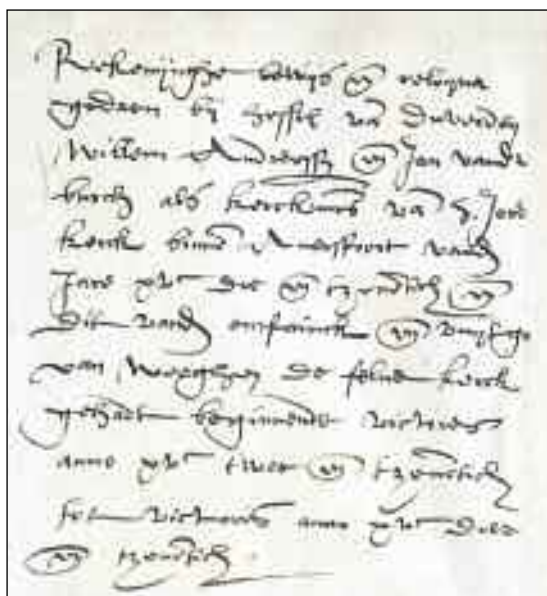 Rekeninghe bewijs en reliqua
gedaen bij van
Willem en Jan vander
burch als kerckmrs van S. Joris
kerck binnen Amersfoort vanden
Jare xvc drie en tzeventich en
dit vanden ontfanck en
van weeghen de selve kerck
gehadt beginnende victoris
anno xvc twee en tzeventich
tot victoris anno xvc drie
en tzeventich